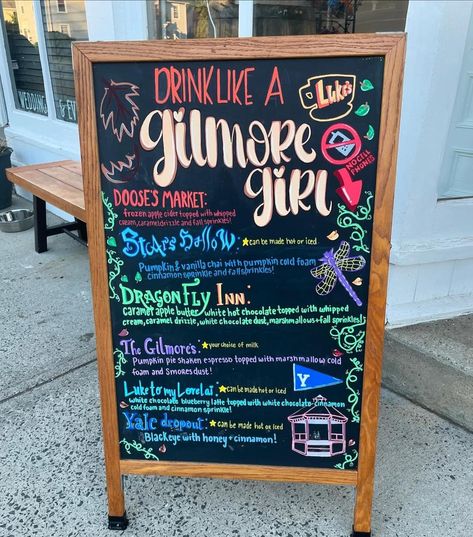 WEDDING & EV
DRINK LIKE A
Luke's
gilmore
girl
NO CELL
PHONES
DOOSE'S MARKET:
frozen apple cider topped with whipped
cream, carameldrizzle and fallsprinkles!
Stars Hollow
★can be made hot or iced
Pumpkin & vanilla chai with pumpkin cold foam
cinnamon sprinkle and fallsprinkles!
DRAGONFLY INN:
caramel apple butter white hot chocolate topped with whipped
cream, caramel drizzle, white chocolate dust, marshmallows + fall sprinkles!
The Gilmore's:
★your choice of milk
Pumpkin pie shaken espresso topped with marshmallow cold
foam and Smores dust!
Luke to my Lorelai
★can be made hot or iced
white chocolate blueberry latte topped with white chocolate cinnamon
cold foam and cinnamon sprinkle!
Y
Yale dropout:
★can be made hot or iced
Blackeye with honey + cinnamon!